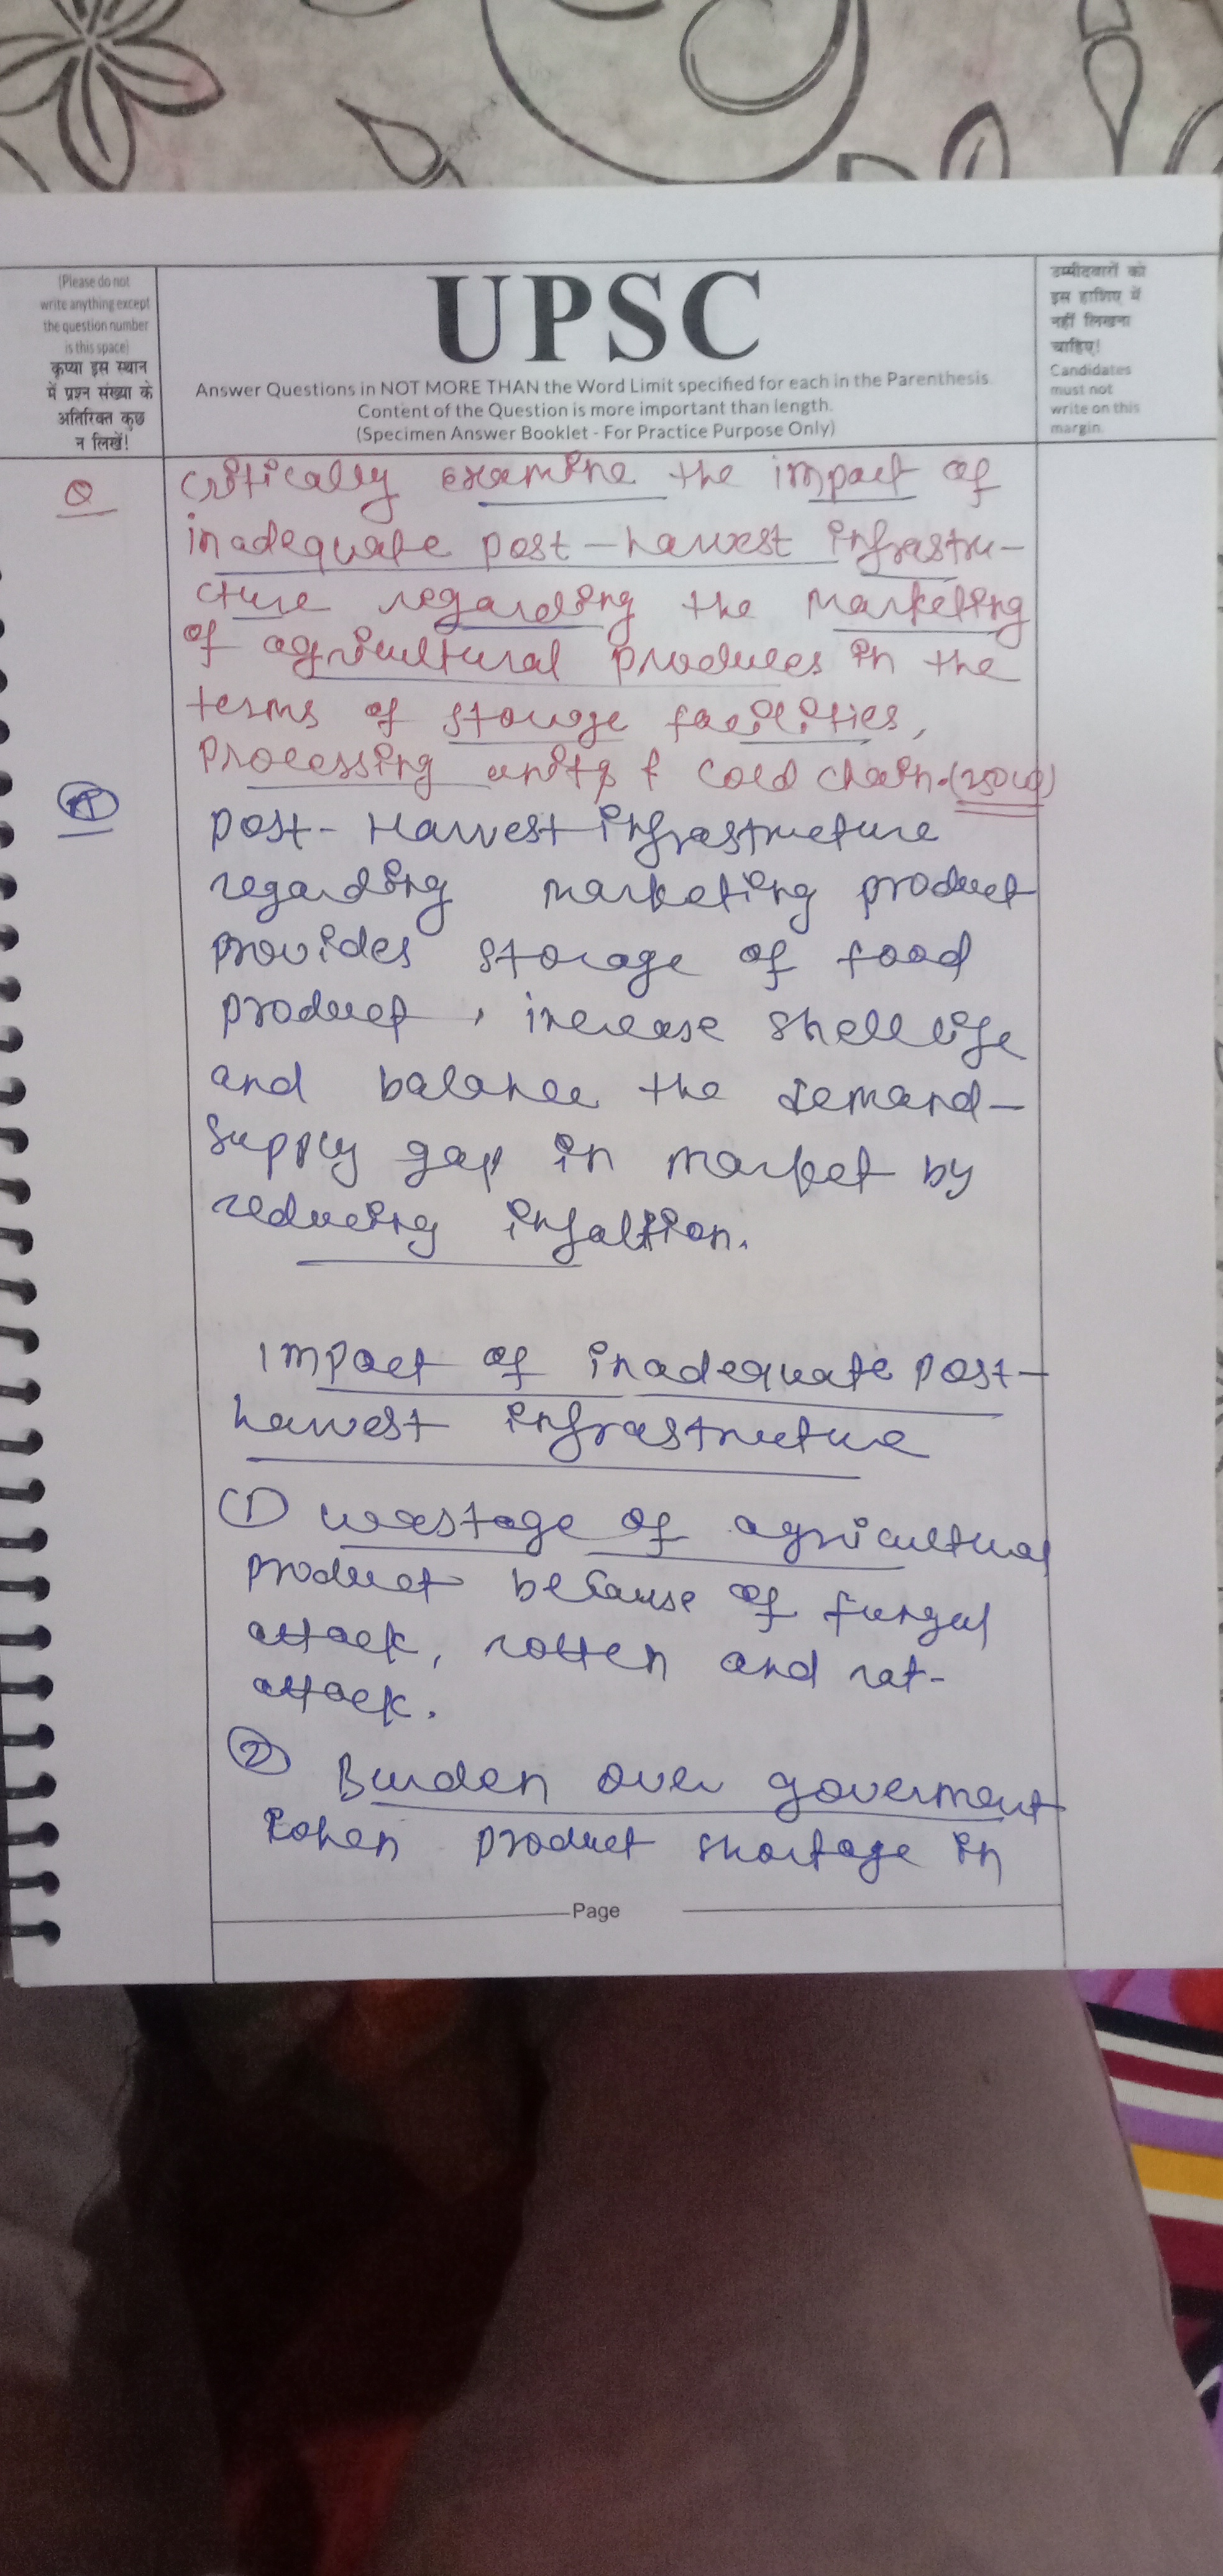 (Please do not
write anything except
the question number
is this space)
कृप्या इस स्थान
में प्रश्न संख्या के
अतिरिक्त कुछ
न लिखें!
UPSC
Answer Questions in NOT MORE THAN the Word Limit specified for each in the Parenthesis.
Content of the Question is more important than length.
(Specimen Answer Booklet - For Practice Purpose Only)
उम्मीदवारों को
इस हाशिए में
नहीं लिखना
चाहिए!
Candidates
must not
write on this
margin.
Q
critically examine the impact of
inadequate post-harvest infrastru-
cture regarding the marketing
of agricultural produces in the
terms of storage facilities,
processing units & cold chain.
Post-Harvest infrastructure
regarding marketing product
provides storage of food
product, increase shelllife
and balance the demand-
supply gap in market by
reducing infaltion.
Impact of inadequate post-
harvest infrastructure
(1) wastage of agricultural
product because of fungal
attack, rotten and rat-
attack.
(2) Burden over goverment
when product shortage in
Page